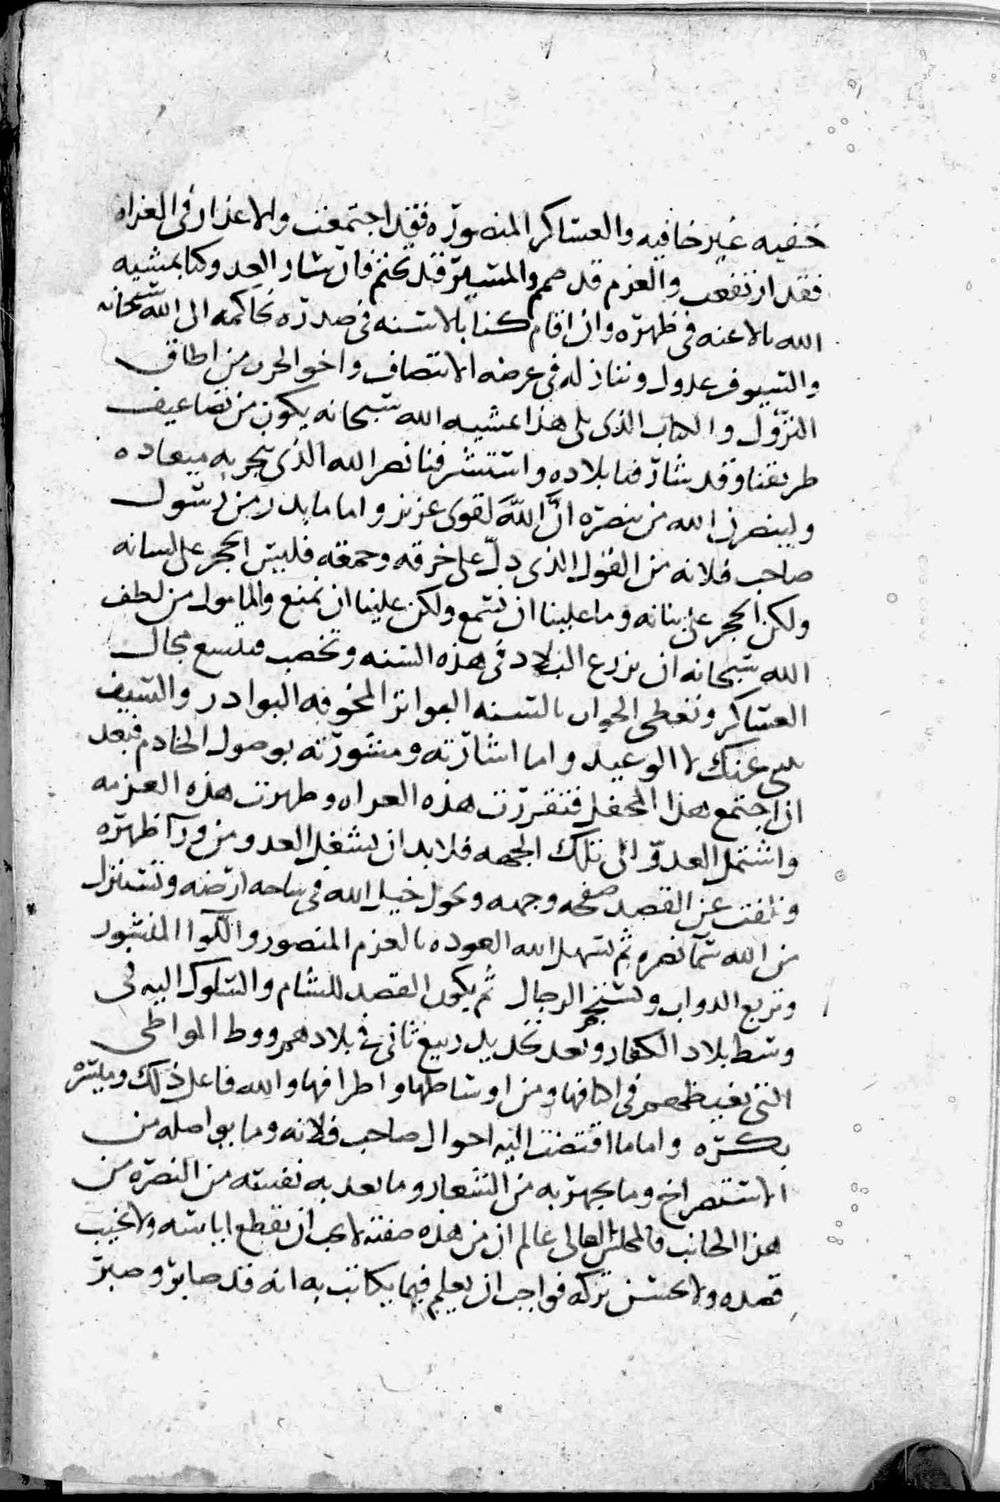 خفيه غير خافيه والعساكر المنصوره فقد اجتمعت والاعذار في الغزاه
فقد ارتفعت والعزم قد صمم والمسير قد تحتم فان سار العدو كنا بمشيه
الله بالاعنه في ظهره وان اقام كنا بالاسنه في صدره نحاكمه الى الله سبحانه
والسيوف عدول وننازله في عرضه الانتصاف واخو الحرب من اطاق
النزول والكتاب الذي يلي هذا بمشيه الله سبحانه يكون من تضاعيف
طريقنا وقد شارفنا بلاده واستشرفنا نصر الله الذي ينجز به ميعاده
ولينصرن الله من ينصره ان الله لقوي عزيز واما ما بدر من رسول
صاحب فلانه من القول الذي دل على خرقه وحمقه فليس الحجر على لسانه
ولكن الحجر على بنانه وما علينا ان نسمع ولكن علينا ان نمنع والمامول من لطف
الله سبحانه ان يزرع البلاد في هذه السنه وتخصب فيسع مجال
العساكر وتعطى الجواب بالسنه البواتر المخوفه البوادر والسيف
عنك لا الوعيد واما اشارته ومشورته بوصول الخادم فبعد
ان اجتمع هذا المحفل فتقررت هذه الغزاه وظهرت هذه العزمه
واشتمل العدو الى تلك الجهه فلا بد ان نشغل العدو من ورآ ظهره
ونلفت عن القصد صفحه وجهه وتجول خيل الله في ساحه ارضه ونستنزل
من الله سمآ نصره ثم يسهل الله العوده بالعزم المنصور واللوا المنشور
وتربع الدواب وتستنجز الرجال ثم يكون القصد للشام والسلوك اليه في
وسط بلاد الكفار وبعد تجديد ربيع ثاني في بلادهم ووطا المواطى
التي تغيظهم في اكنافها ومن اوساطها واطرافها والله فاعل ذلك وميسره
بكرمه واما ما اقتضت اليه احوال صاحب فلانه وما يواصله من
الاستصراخ وما يجهر به من الشعار وما يعد به نفسه من النصره من
هذا الجانب فالمجلس العالي عالم ان من هذه صفته لا يجب ان يقطع اياسه ولا يخيب
قصده ولا يحسن تركه فواجب ان يعلم فيما يكاتب به انه قد صابر وصبر